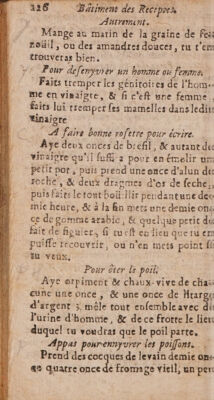 226 Bâtiment des Receptes.
Autrement.
Mange au matin de la graine de fe-
nouil, ou des amandres douces, tu t'en
trouveras bien.
Pour desenyvrer un homme ou femme.
Faits tremper les génitoires de l'hom-
me en vinaigre, & si c'est une femme,
faits lui tremper ses mamelles dans ledit
vinaigre
A faire bonne rosette pour écrire.
Aye deux onces de bresil, & autant de
vinaigre qu'il suffi a pour en émelir un
petit pot, puis prend une once d'alun de
roche, & deux dragmes d'or de seche,
puis faits le tout boüillir pendant une de-
mie heure, & à la fin mets une demie on-
ce de gomme arabic, & quelque petit
fait de figuier, si tu est en lieu que tu en
puisse recouvrir, ou n'en mets point si
tu veux.
Pour ôter le poil.
Aye orpiment & chaux-vive de cha-
cune une once, & une once de litarge
d'argent mêle tout ensemble avec de
l'urine d'homme, & de ce frotte le lieu
duquel tu voudras que le poil parte.
Appas pour ennyvrer les poissons.
Prend des cocques de levain demie on-
ce quatre once de fromage vieil, un pe